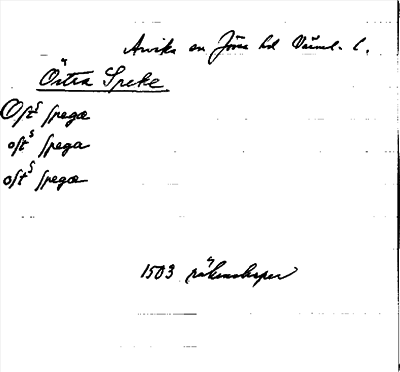 Arvika sn Jösse hd Värml. l.
Östra Speke
Østˢ spegæ
østˢ spega
østˢ spegæ
1503 räkenskaper